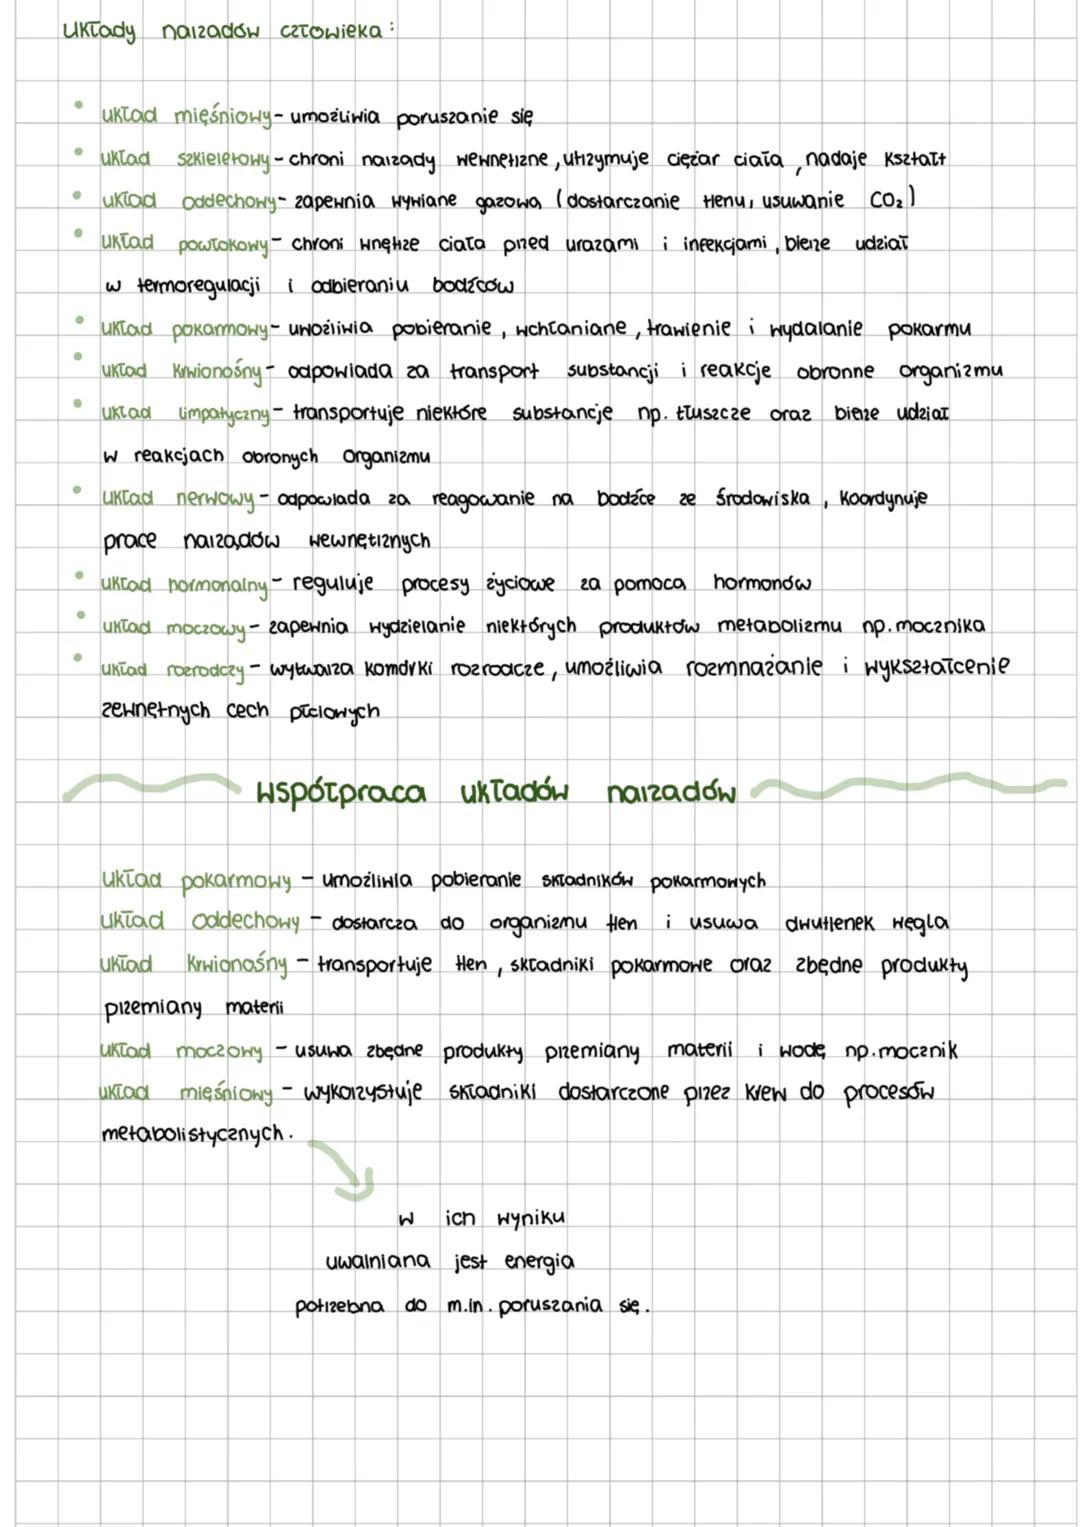 Układy narządów człowieka:
• układ mięśniowy - umożliwia poruszanie się
• układ szkieletowy - chroni narządy wewnętrzne, utrzymuje ciężar ciała, nadaje kształt
• układ oddechowy - zapewnia wymiane gazową (dostarczanie tlenu, usuwanie CO₂)
• układ powłokowy - chroni wnętrze ciała przed urazami i infekcjami, bierze udział
w termoregulacji i odbieraniu bodźców
• układ pokarmowy - umożliwia pobieranie, wchłaniane, trawienie i wydalanie pokarmu
• układ krwionośny - odpowiada za transport substancji i reakcje obronne organizmu
• układ limpatyczny - transportuje niektóre substancje np. tłuszcze oraz bierze udział
w reakcjach obronych organizmu
• układ nerwowy - odpowiada za reagowanie na bodźce ze środowiska, koordynuje
prace narządów wewnętrznych
• układ hormonalny - reguluje procesy życiowe za pomocą hormonów
• układ moczowy - zapewnia wydzielanie niektórych produktów metabolizmu np. mocznika
• układ rozrodczy - wytwarza komórki rozrodcze, umożliwia rozmnażanie i wykształcenie
zewnętrnych cech płciowych
Współpraca układów narządów
układ pokarmowy - umożliwia pobieranie składników pokarmowych
układ oddechowy - dostarcza do organizmu tlen i usuwa dwutlenek węgla
układ krwionośny - transportuje tlen, składniki pokarmowe oraz zbędne produkty
przemiany materii
układ moczowy - usuwa zbędne produkty przemiany materii i wodę np. mocznik
układ mięśniowy - wykorzystuje składniki dostarczone przez krew do procesów
metabolistycznych.
w ich wyniku
uwalniana jest energia
potrzebna do m.in. poruszania się.